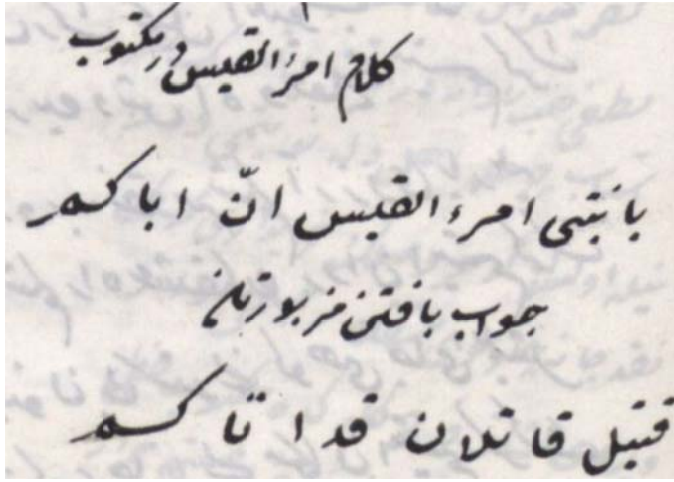 كلام امرؤ القيس در مكتوب
يا بنتى امرء القيس انّ اباكمـ
جواب يافتن مزبورتان
قتيل قاتلان قد اتاكمـ